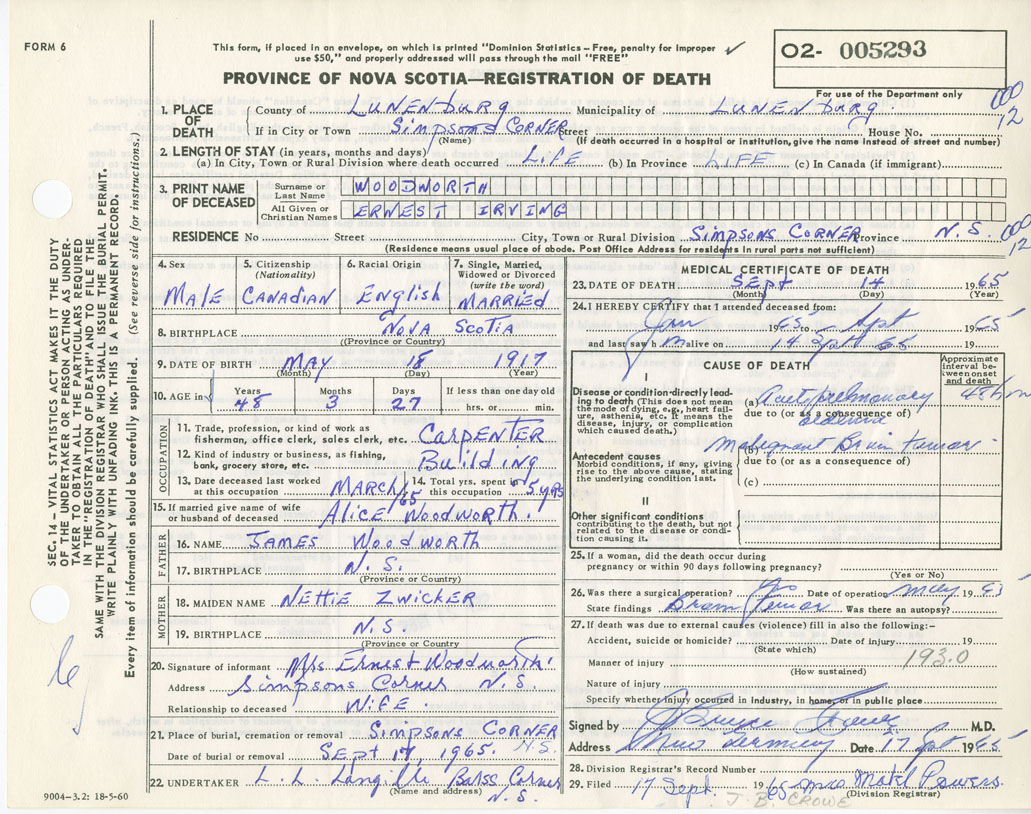 FORM 6
This form, if placed in an envelope, on which is printed "Dominion Statistics – Free, penalty for improper
use $50," and properly addressed will pass through the mail "FREE"
O2- 005293
PROVINCE OF NOVA SCOTIA—REGISTRATION OF DEATH
For use of the Department only
000
12
1. PLACE OF DEATH
County of LUNENburg Municipality of LUNENburg.
If in City or Town Simpsons CORNER Street House No.
(Name) (If death occurred in a hospital or institution, give the name instead of street and number)
2. LENGTH OF STAY (in years, months and days)
(a) In City, Town or Rural Division where death occurred LIFE (b) In Province LIFE (c) In Canada (if immigrant)
3. PRINT NAME OF DECEASED
Surname or Last Name WOODWORTH
All Given or Christian Names ERNEST IRVING
RESIDENCE No Street City, Town or Rural Division Simpsons CORNER Province N.S.
000
12
(Residence means usual place of abode. Post Office Address for residents in rural parts not sufficient)
4. Sex MALE
5. Citizenship (Nationality) CANADIAN
6. Racial Origin English
7. Single, Married, Widowed or Divorced (write the word) MARRIED
8. BIRTHPLACE Nova Scotia
(Province or Country)
9. DATE OF BIRTH MAY 18 1917
(Month) (Day) (Year)
10. AGE in Years 48 Months 3 Days 27 If less than one day old hrs. or min.
OCCUPATION
11. Trade, profession, or kind of work as
fisherman, office clerk, sales clerk, etc. CARPENTER
12. Kind of industry or business, as fishing,
bank, grocery store, etc. Building
13. Date deceased last worked at this occupation MARCH/65
14. Total yrs. spent in this occupation 5 yrs
15. If married give name of wife
or husband of deceased Alice Woodworth.
FATHER
16. NAME JAMES Woodworth
17. BIRTHPLACE N.S.
(Province or Country)
MOTHER
18. MAIDEN NAME NETTIE ZWICKER
19. BIRTHPLACE N.S.
(Province or Country
20. Signature of informant Mrs Ernest Woodworth.
Address Simpsons Corner N.S.
Relationship to deceased WIFE.
21. Place of burial, cremation or removal Simpsons CORNER
N.S.
Date of burial or removal SEPT 17 1965.
22. UNDERTAKER L. L. Langille Barss Corner
(Name and address) N.S.
9004–3.2: 18-5-60
MEDICAL CERTIFICATE OF DEATH
23. DATE OF DEATH Sept 14 1965
(Month) (Day) (Year)
24. I HEREBY CERTIFY that I attended deceased from:
Jan 1965 to Sept 1965
and last saw him alive on 14 Sept 65 19
CAUSE OF DEATH
Approximate interval between onset and death
I
Disease or condition directly leading to death (This does not mean the mode of dying, e.g., heart failure, asthenia, etc. It means the disease, injury, or complication which caused death.)
(a) Acute pulmonary 48 hrs
due to (or as a consequence of)
oedema
Malignant Brain tumor
Antecedent causes
Morbid conditions, if any, giving rise to the above cause, stating the underlying condition last.
(b)
due to (or as a consequence of)
(c)
II
Other significant conditions
contributing to the death, but not related to the disease or condition causing it.
25. If a woman, did the death occur during
pregnancy or within 90 days following pregnancy?
(Yes or No)
26. Was there a surgical operation? Date of operation May 19
State findings Brain tumor Was there an autopsy?
27. If death was due to external causes (violence) fill in also the following:-
Accident, suicide or homicide? Date of injury 19
(State which)
193.0
Manner of injury
(How sustained)
Nature of injury
Specify whether injury occurred in industry, in home, or in public place
Signed by M.D.
Address Date 17 Sept 1965
28. Division Registrar's Record Number
29. Filed 17 Sept. 1965 Mrs Mabel Powers.
(Division Registrar)
J. B. CROWE
SEC. 14 – VITAL STATISTICS ACT MAKES IT THE DUTY
OF THE UNDERTAKER OR PERSON ACTING AS UNDER-
TAKER TO OBTAIN ALL THE PARTICULARS REQUIRED
IN THE "REGISTRATION OF DEATH" AND TO FILE THE
SAME WITH THE DIVISION REGISTRAR WHO SHALL ISSUE THE BURIAL PERMIT.
WRITE PLAINLY WITH UNFADING INK. THIS IS A PERMANENT RECORD.
Every item of information should be carefully supplied. (See reverse side for instructions.)